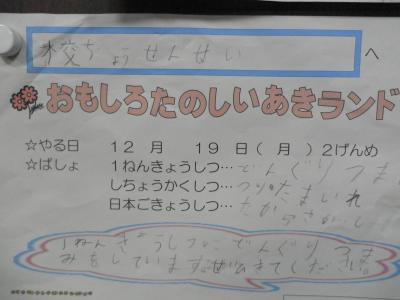 校ちょうせんせい
へ
おもしろたのしいあきランド
☆やる日 12月 19日(月)2げんめ
☆ばしょ 1ねんきょうしつ…どんぐりつま
しちょうかくしつ…つり・たまいれ
日本ごきょうしつ…たからさがし
1ねんきょうしつに どんぐりつま
みをしています。ぜひきてください。